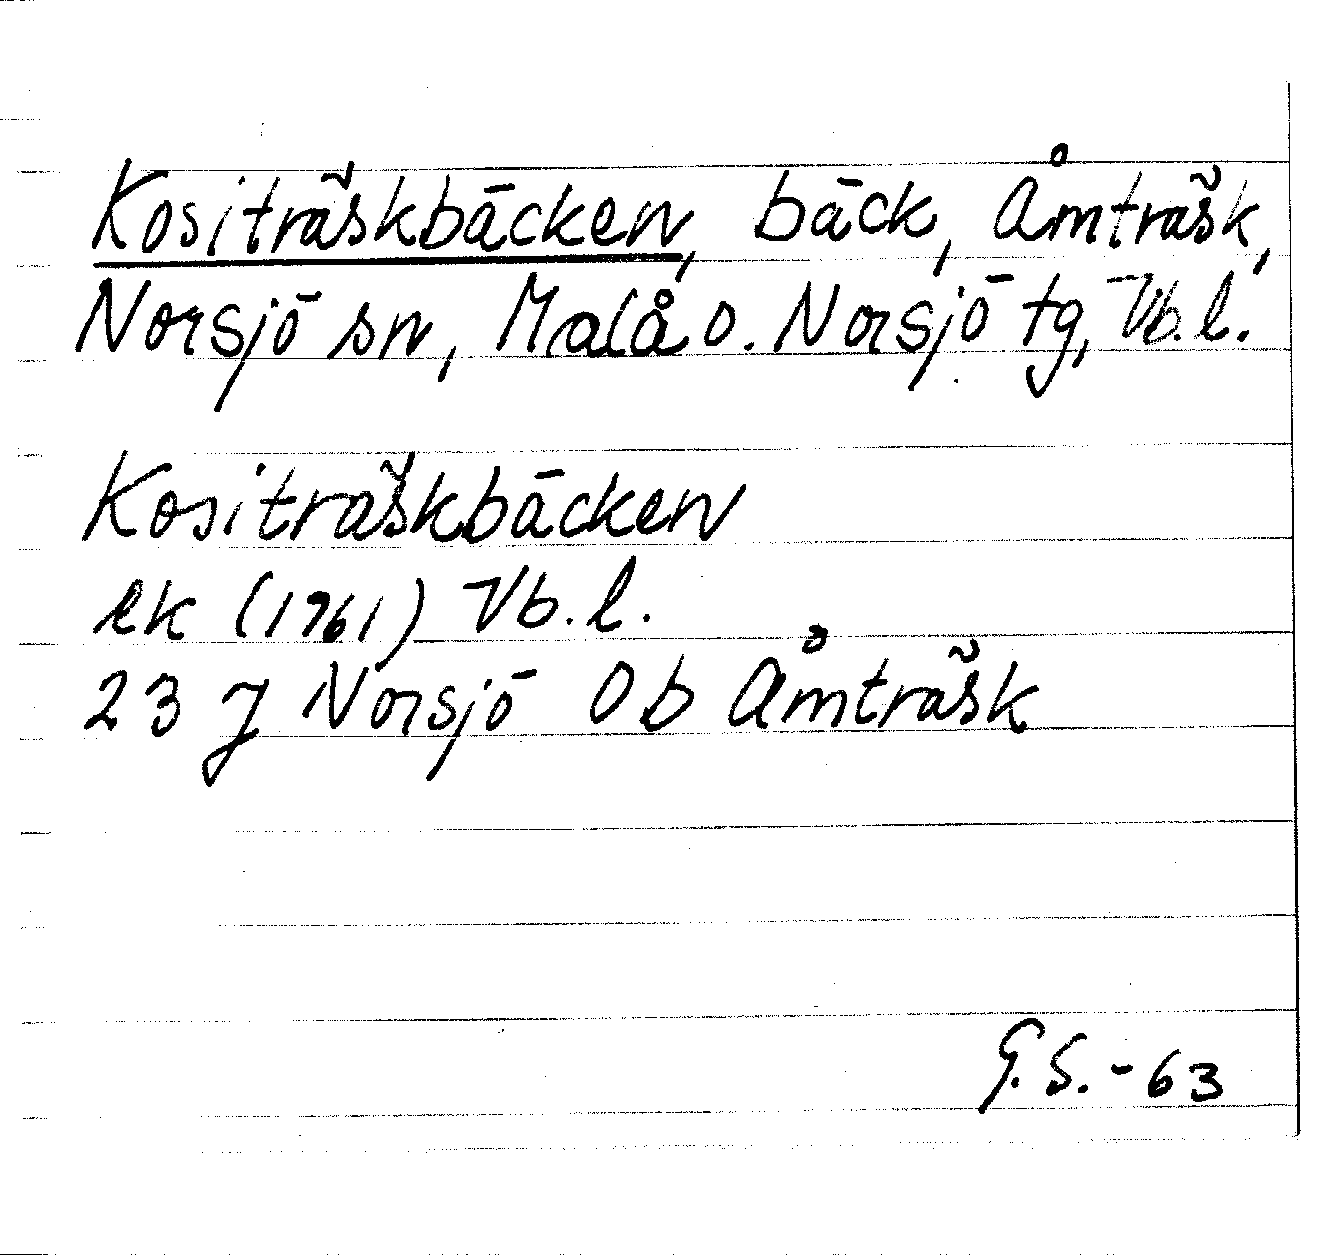 Kositräskbäcken, bäck, Åmträsk,
Norsjö sn, Malå o. Norsjö tg, Vb.l.
Kositräskbäcken
ek (1961) Vb.l.
23 J Norsjö 0b Åmträsk
G.S.-63